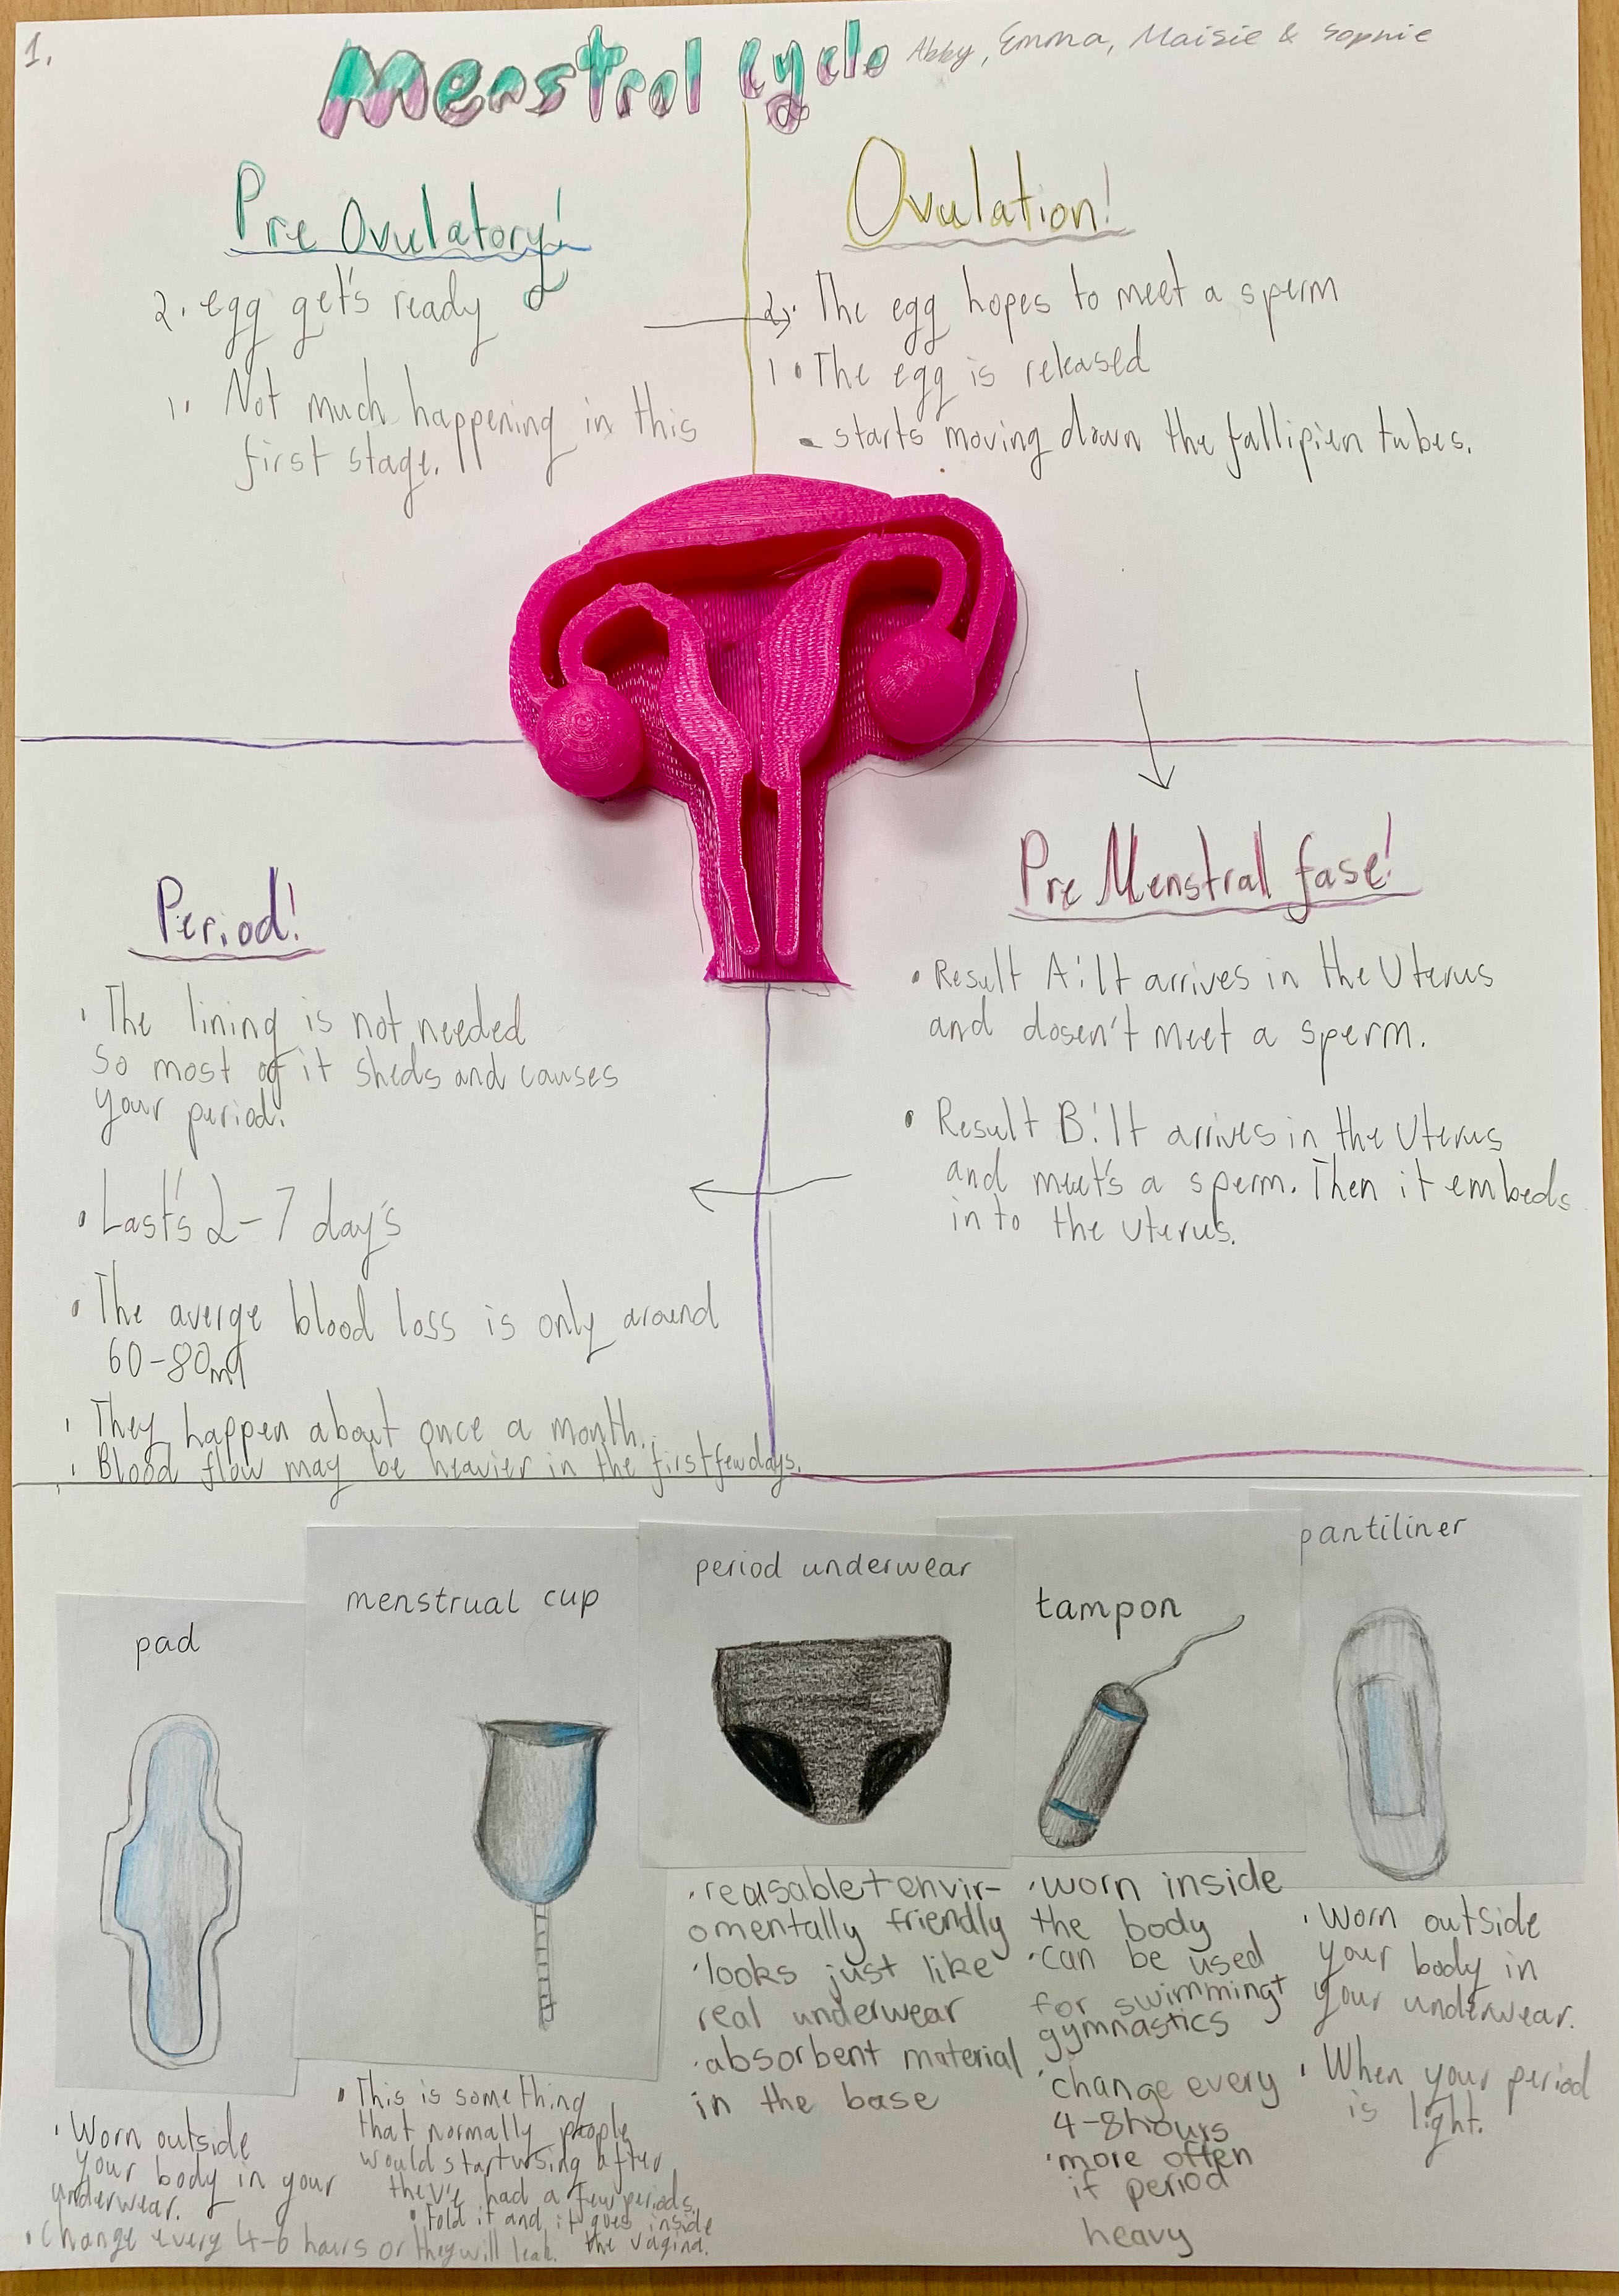 1.
Menstral Cycle
Abby, Emma, Maisie & Sophie
Pre Ovulatory!
2. egg get's ready
1. Not much happening in this
first stage.
Ovulation!
2. The egg hopes to meet a sperm
1 • The egg is released
- starts moving down the fallipien tubes.
Pre Menstral fase!
• Result A: It arrives in the Uterus
and dosen't meet a sperm.
• Result B: It arrives in the Uterus
and meet's a sperm. Then it embeds
in to the uterus.
Period!
• The lining is not needed
so most of it sheds and causes
your period.
• Last's 2-7 day's
• The averge blood loss is only around
60-80ml
• They happen about once a month.
• Blood flow may be heavier in the first few days.
pad
• Worn outside
your body in your
underwear.
• Change every 4-6 hours or they will leak.
menstrual cup
• This is something
that normally people
would start using after
they'e had a few periods
• Fold it and it goes inside
the vagina.
period underwear
• reausable + envir-
omentally friendly
• looks just like
real underwear
• absorbent material
in the base
tampon
• worn inside
the body
• can be used
for swimming +
gymnastics
• change every
4-8 hours
• more often
if period
heavy
pantiliner
• Worn outside
your body in
your underwear.
• When your period
is light.